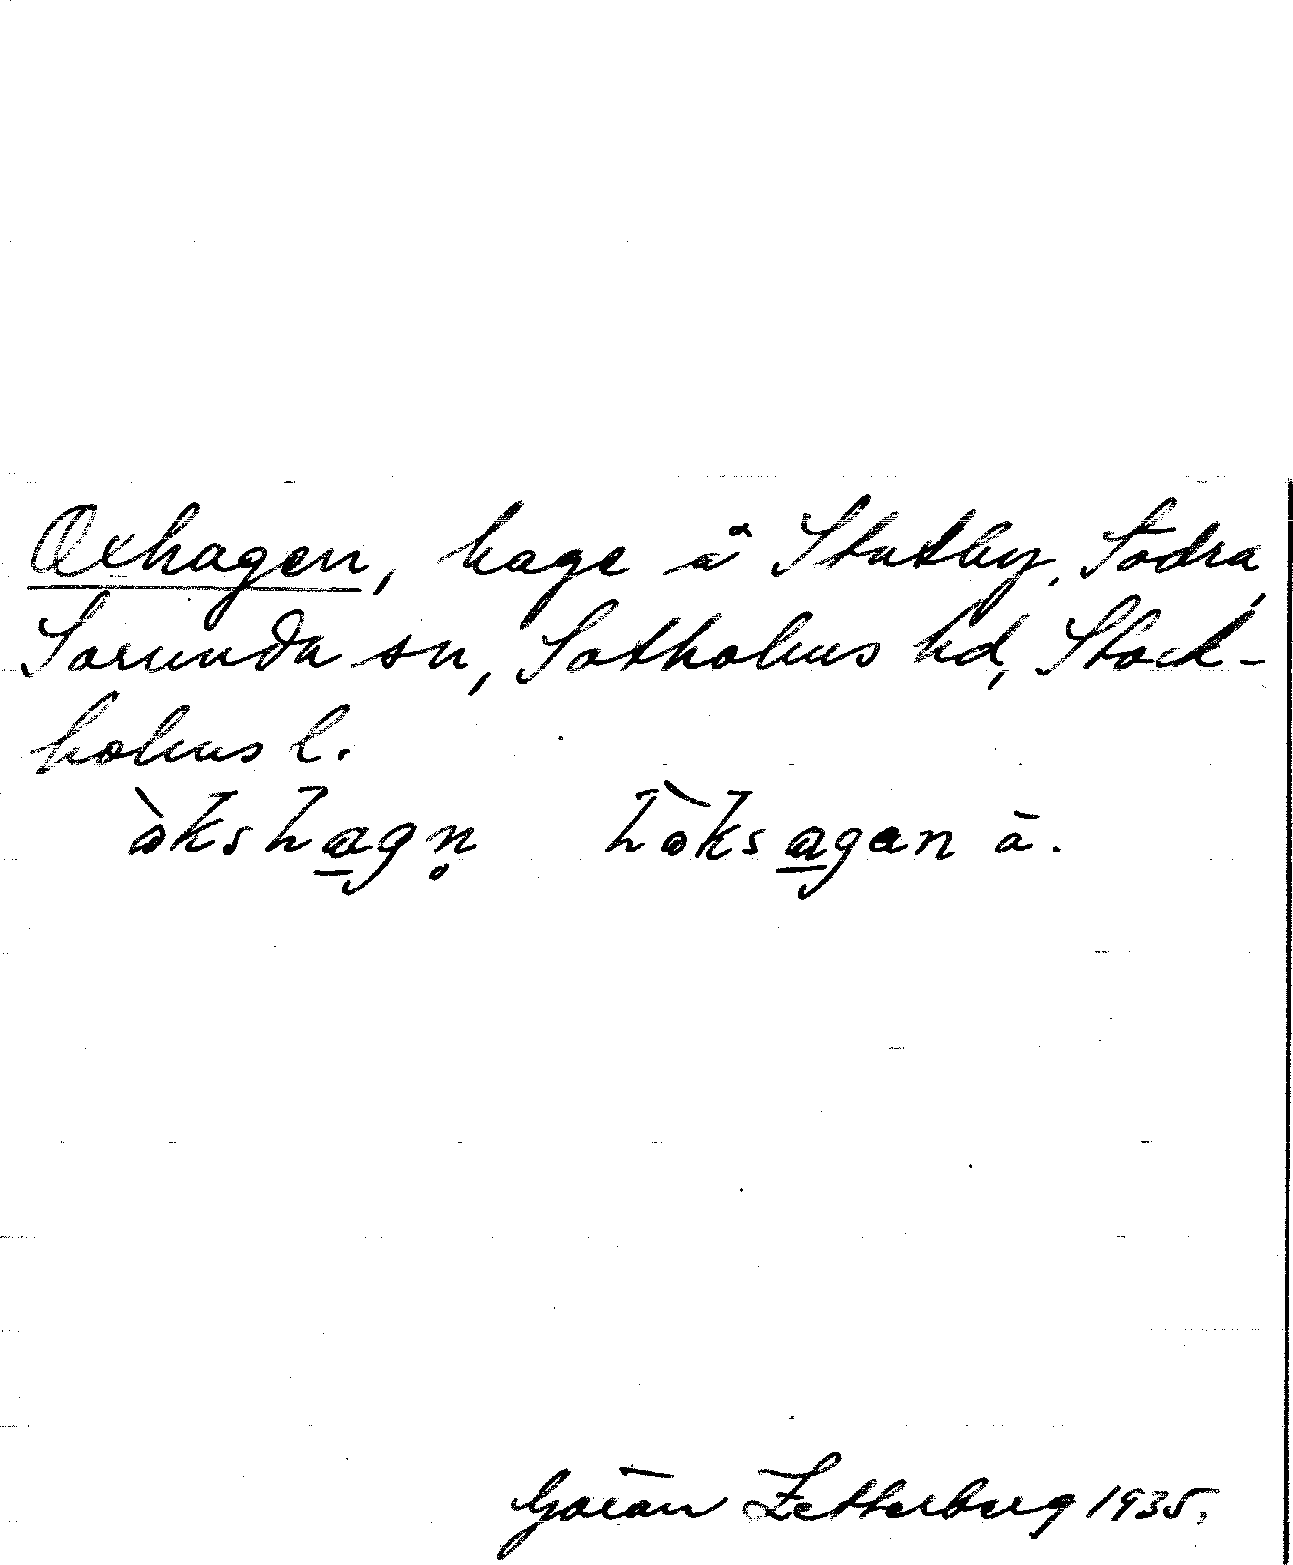 Oxhagen, hage å Stutby, Södra,
Sorunda sn, Sotholms hd, Stock-
holms l.
ò̀kshagn̥ hò̀ksagan ä.
Göran Zetterberg 1935.